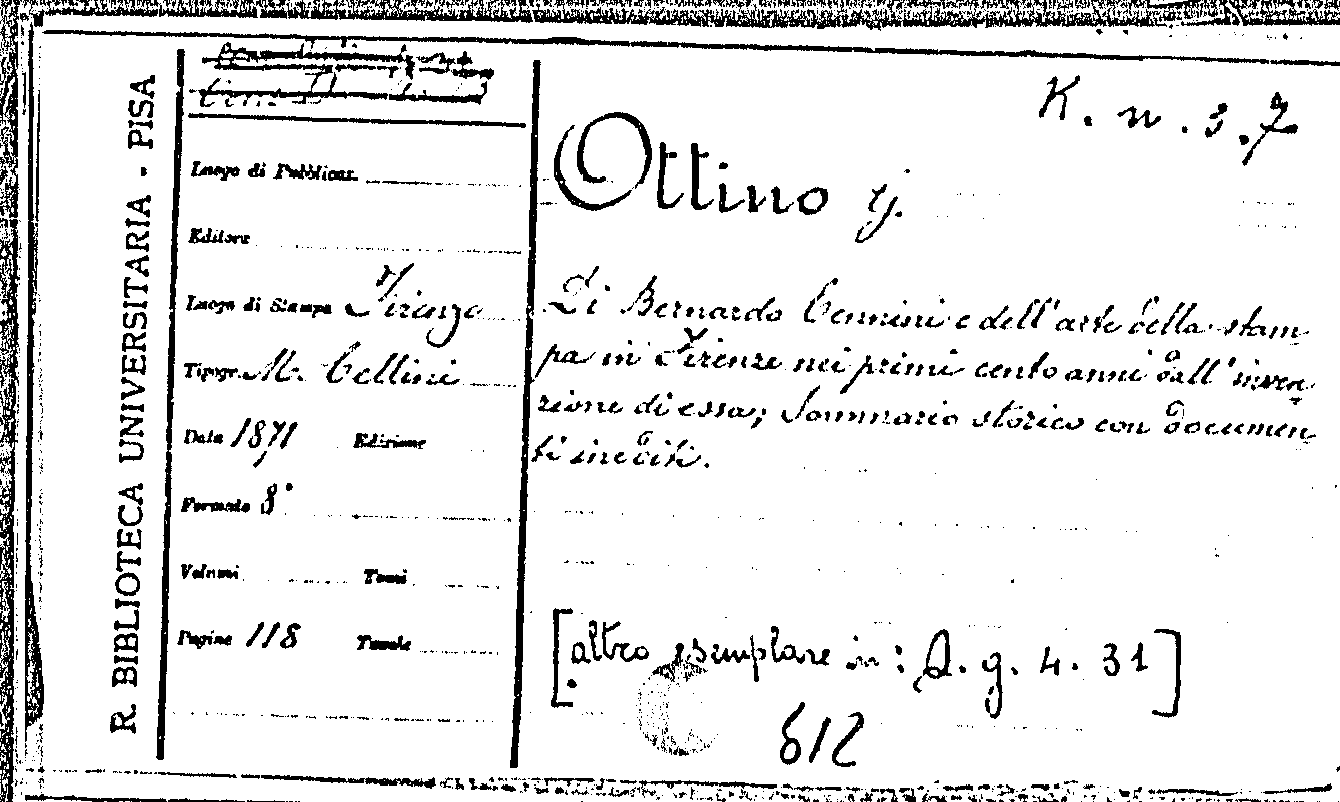 R. BIBLIOTECA UNIVERSITARIA - PISA
K. n. 3. 7
Luogo di Pubblicaz.
Editore
Luogo di Stampa Firenze
Tipogr. M. Cellini
Data 1871 Edizione
Formato 8°
Volumi Tomi
Pagine 118 Tavole
Ottino G.
Di Bernardo Cennini e dell'arte della stam-
pa in Firenze nei primi cento anni dall'inven-
zione di essa; Sommario storico con documen-
ti inediti.
[altro esemplare in: A. g. 4. 31]
612